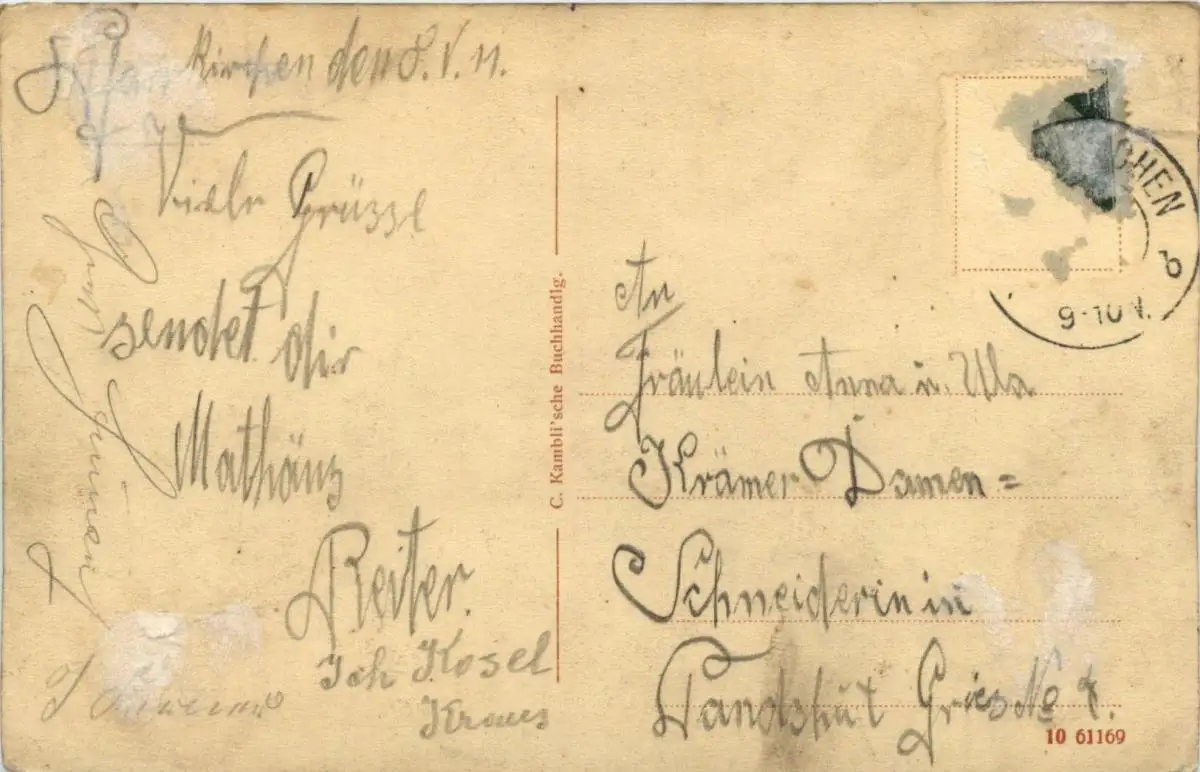 kirchen den 8. V. 11.
Viele Grüsse
sendet dir
Mathäus
Reiter.
Joh Kosel
Kraus
Gruß
C. Kambli'sche Buchhandlg.
CHEN
b
9-10 V.
An
Fräulein Anna u.
Krämer Damen=
Schneiderin in
Landshut Gries No
10 61169